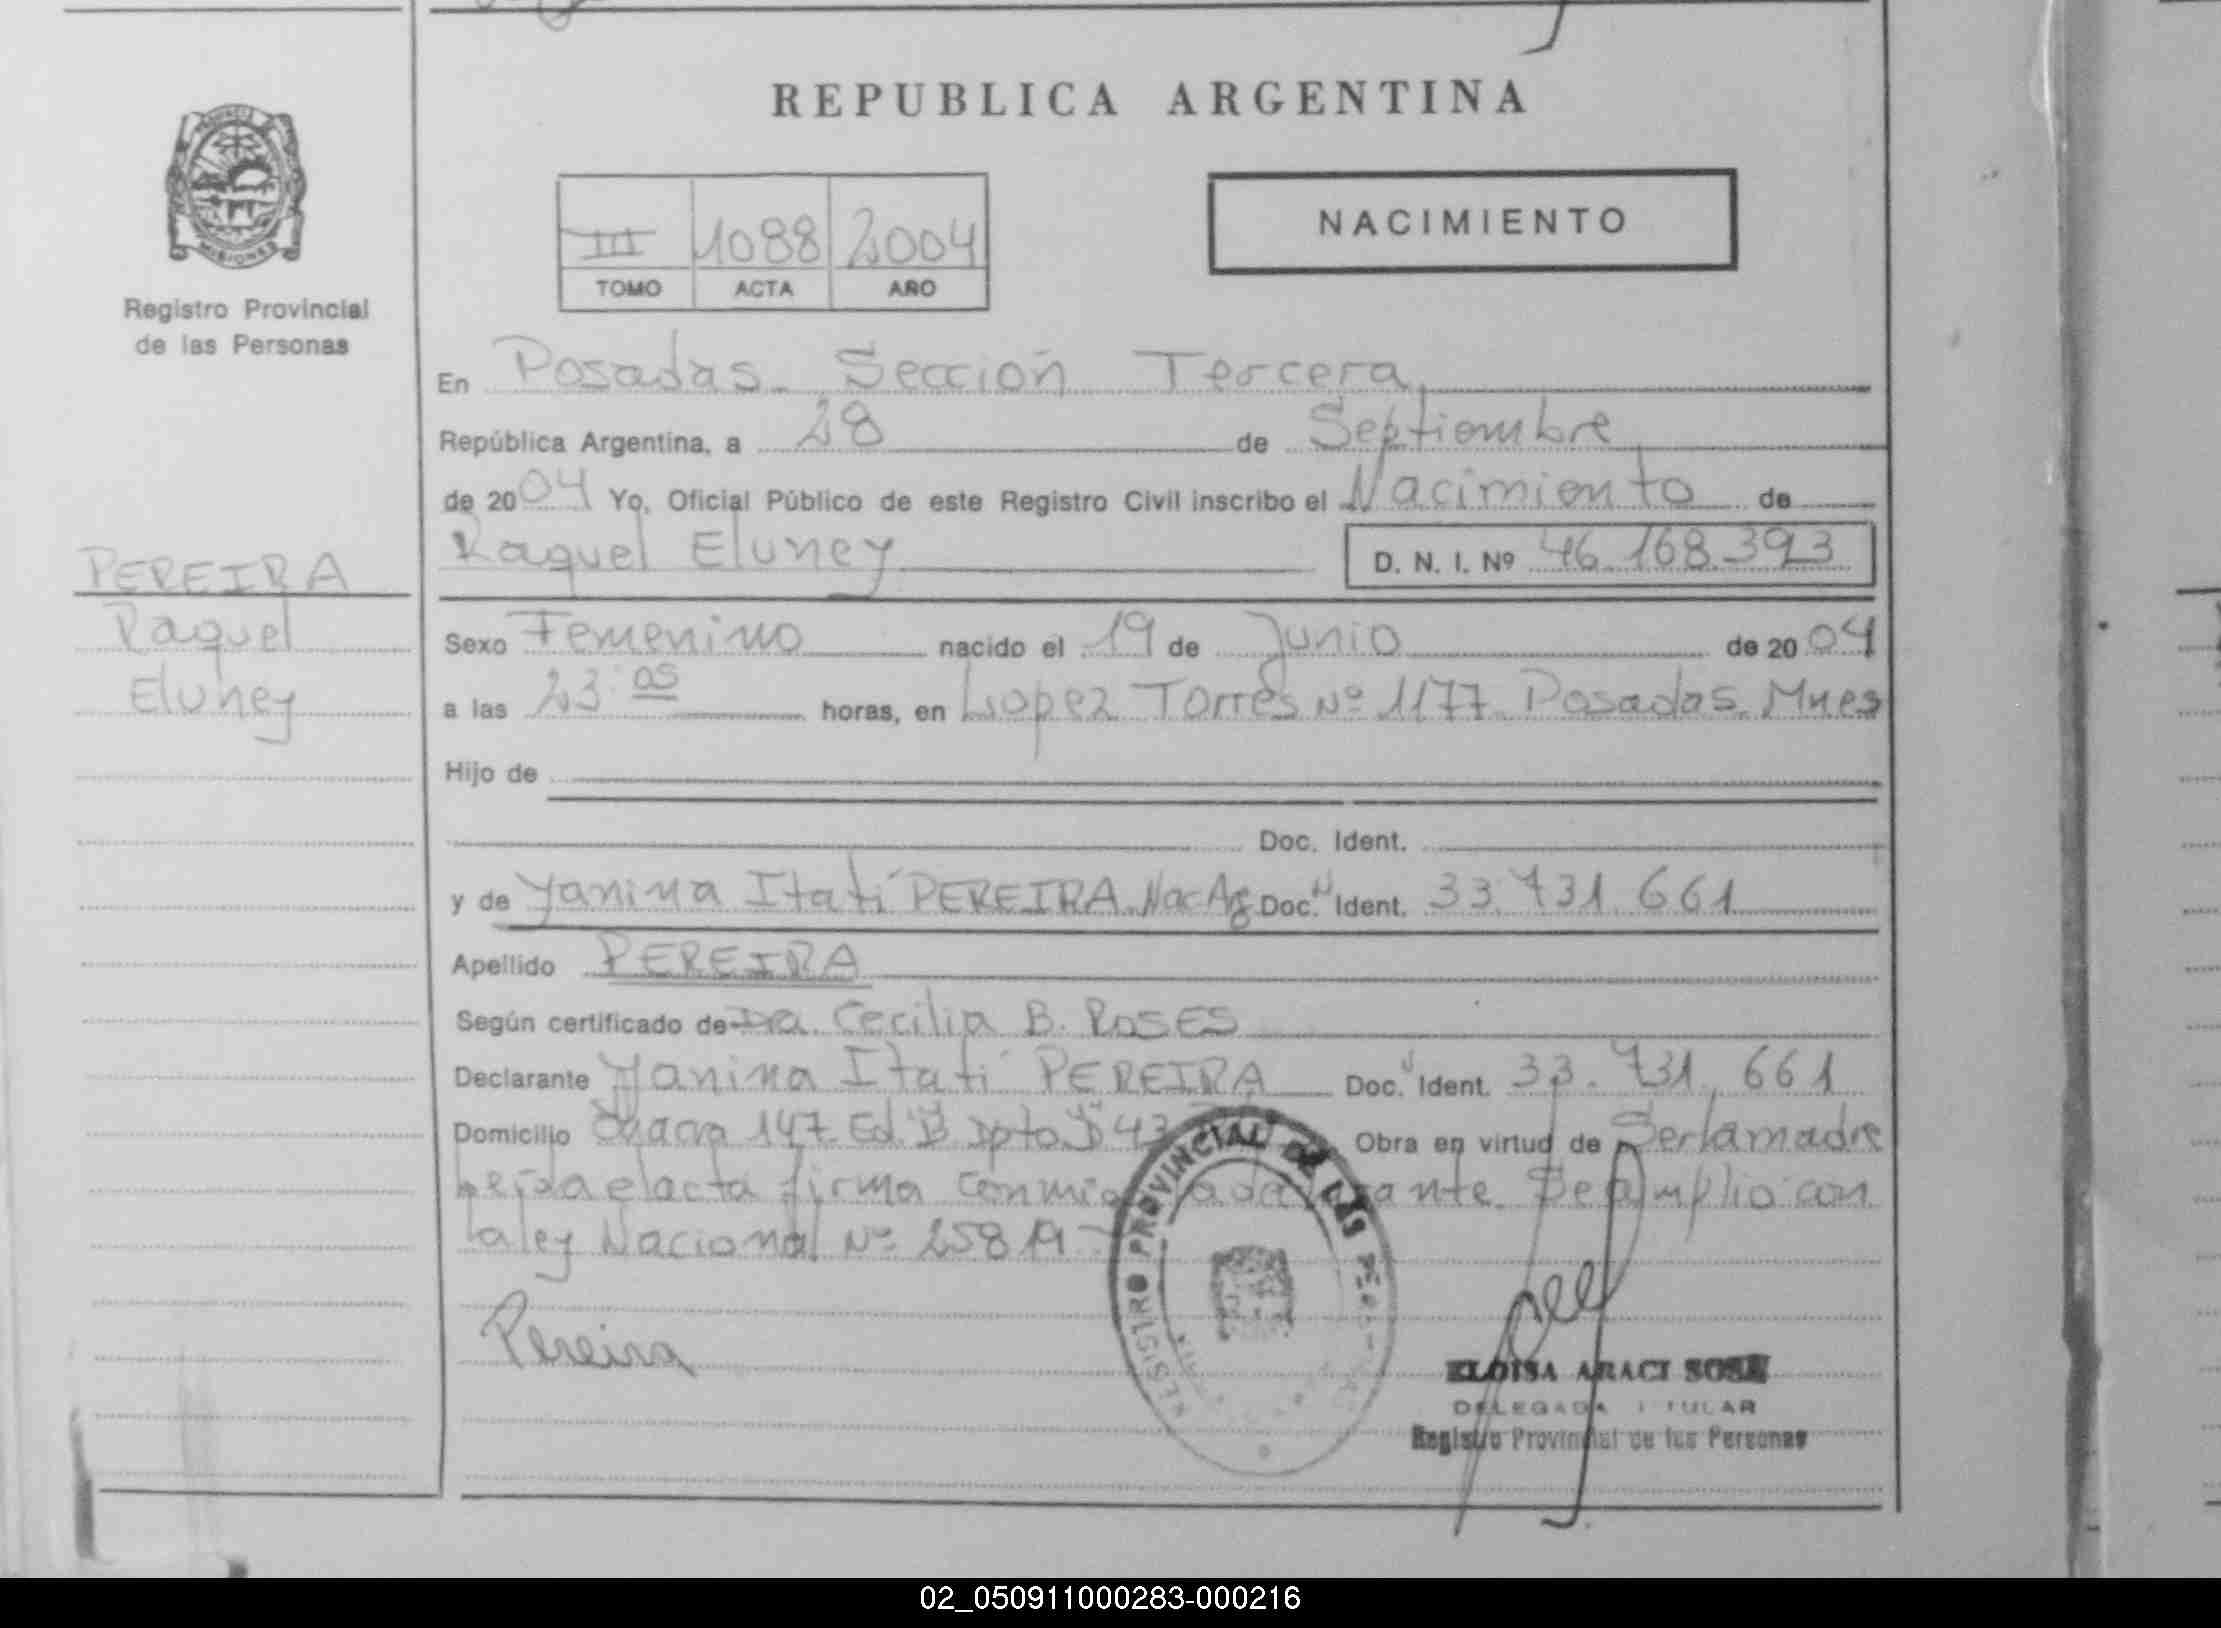 REPUBLICA ARGENTINA
MISIONES
Registro Provincial
de las Personas
III 1088 2004
TOMO ACTA AÑO
NACIMIENTO
En Posadas Sección Tercera
República Argentina, a 28 de Septiembre
de 2004 Yo, Oficial Público de este Registro Civil inscribo el Nacimiento de
Raquel Eluney D. N. I. Nº 46.168.393
PEREIRA
Raquel
Eluney
Sexo Femenino nacido el 19 de Junio de 2004
a las 23:05 horas, en Lopez Torres Nº 1177 Posadas Mnes
Hijo de
Doc. Ident.
y de Yanina Itatí PEREIRA Nac Ag Doc. Ident. 33.731.661
Apellido PEREIRA
Según certificado de Dra. Cecilia B. ROSES
Declarante Yanina Itatí PEREIRA Doc. Ident. 33.731.661
Domicilio Chacra 147 Ed. Dpto 43 Obra en virtud de Ser la madre
leída el acta firma conmigo la declarante. Se amplio con
la ley Nacional Nº 25819
Pereira
REGISTRO PROVINCIAL DE LAS
ELOISA ARACI SOSA
DELEGADA TITULAR
Registro Provincial de las Personas
02_050911000283-000216